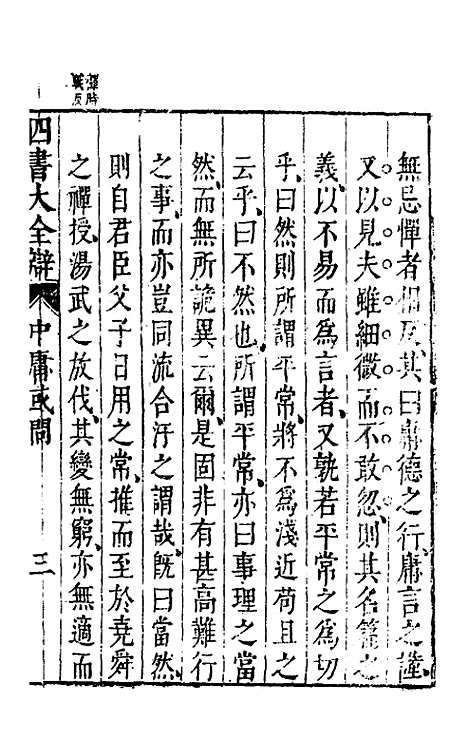 無忌憚者相反其曰庸德之行庸言之謹
又以見夫雖細微而不敢忽則其名篇之
義以不易而為言者又孰若平常之為切
乎曰然則所謂平常將不為淺近苟且之
云乎曰不然也所謂平常亦曰事理之當
然而無所詭異云爾是固非有甚高難行
之事而亦豈同流合汙之謂哉既曰當然
則自君臣父子日用之常推而至於堯舜
之禪授湯武之放伐其變無窮亦無適而
禪時
戰反
四書大全辯 中庸或問 三